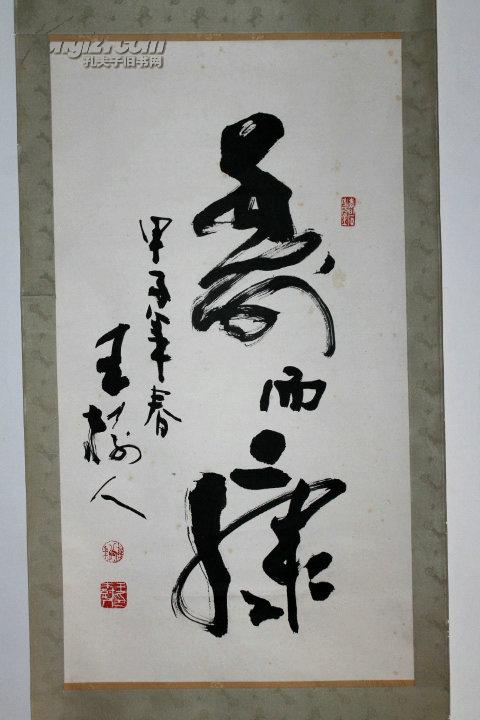 孔夫子旧书网
壽而康
甲子年春
王樹人